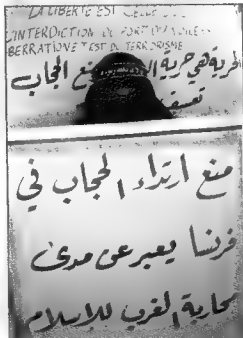 LA LIBERTÉ EST CELLE
L'INTERDICTION DE PORT DU VOILE
EST DE TERRORISME
الحرية هي حرية منع الحجاب
تعسف
منع ارتداء الحجاب في
فرنسا يعبر عن مدى
محاربة الغرب للإسلام